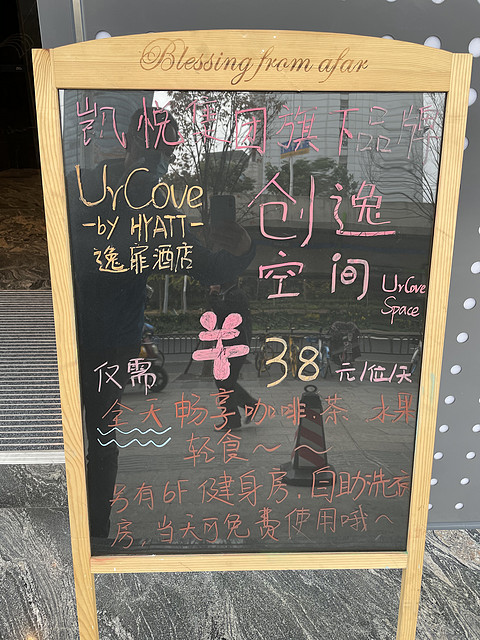 Blessing from afar
凯悦集团旗下品牌
UrCove
-by HYATT-
逸扉酒店
创逸
空间
UrCove
Space
仅需 ¥38元/位/天
全天畅享咖啡.茶.水果
轻食~ ~
另有6F健身房,自助洗衣
房,当天可免费使用哦~